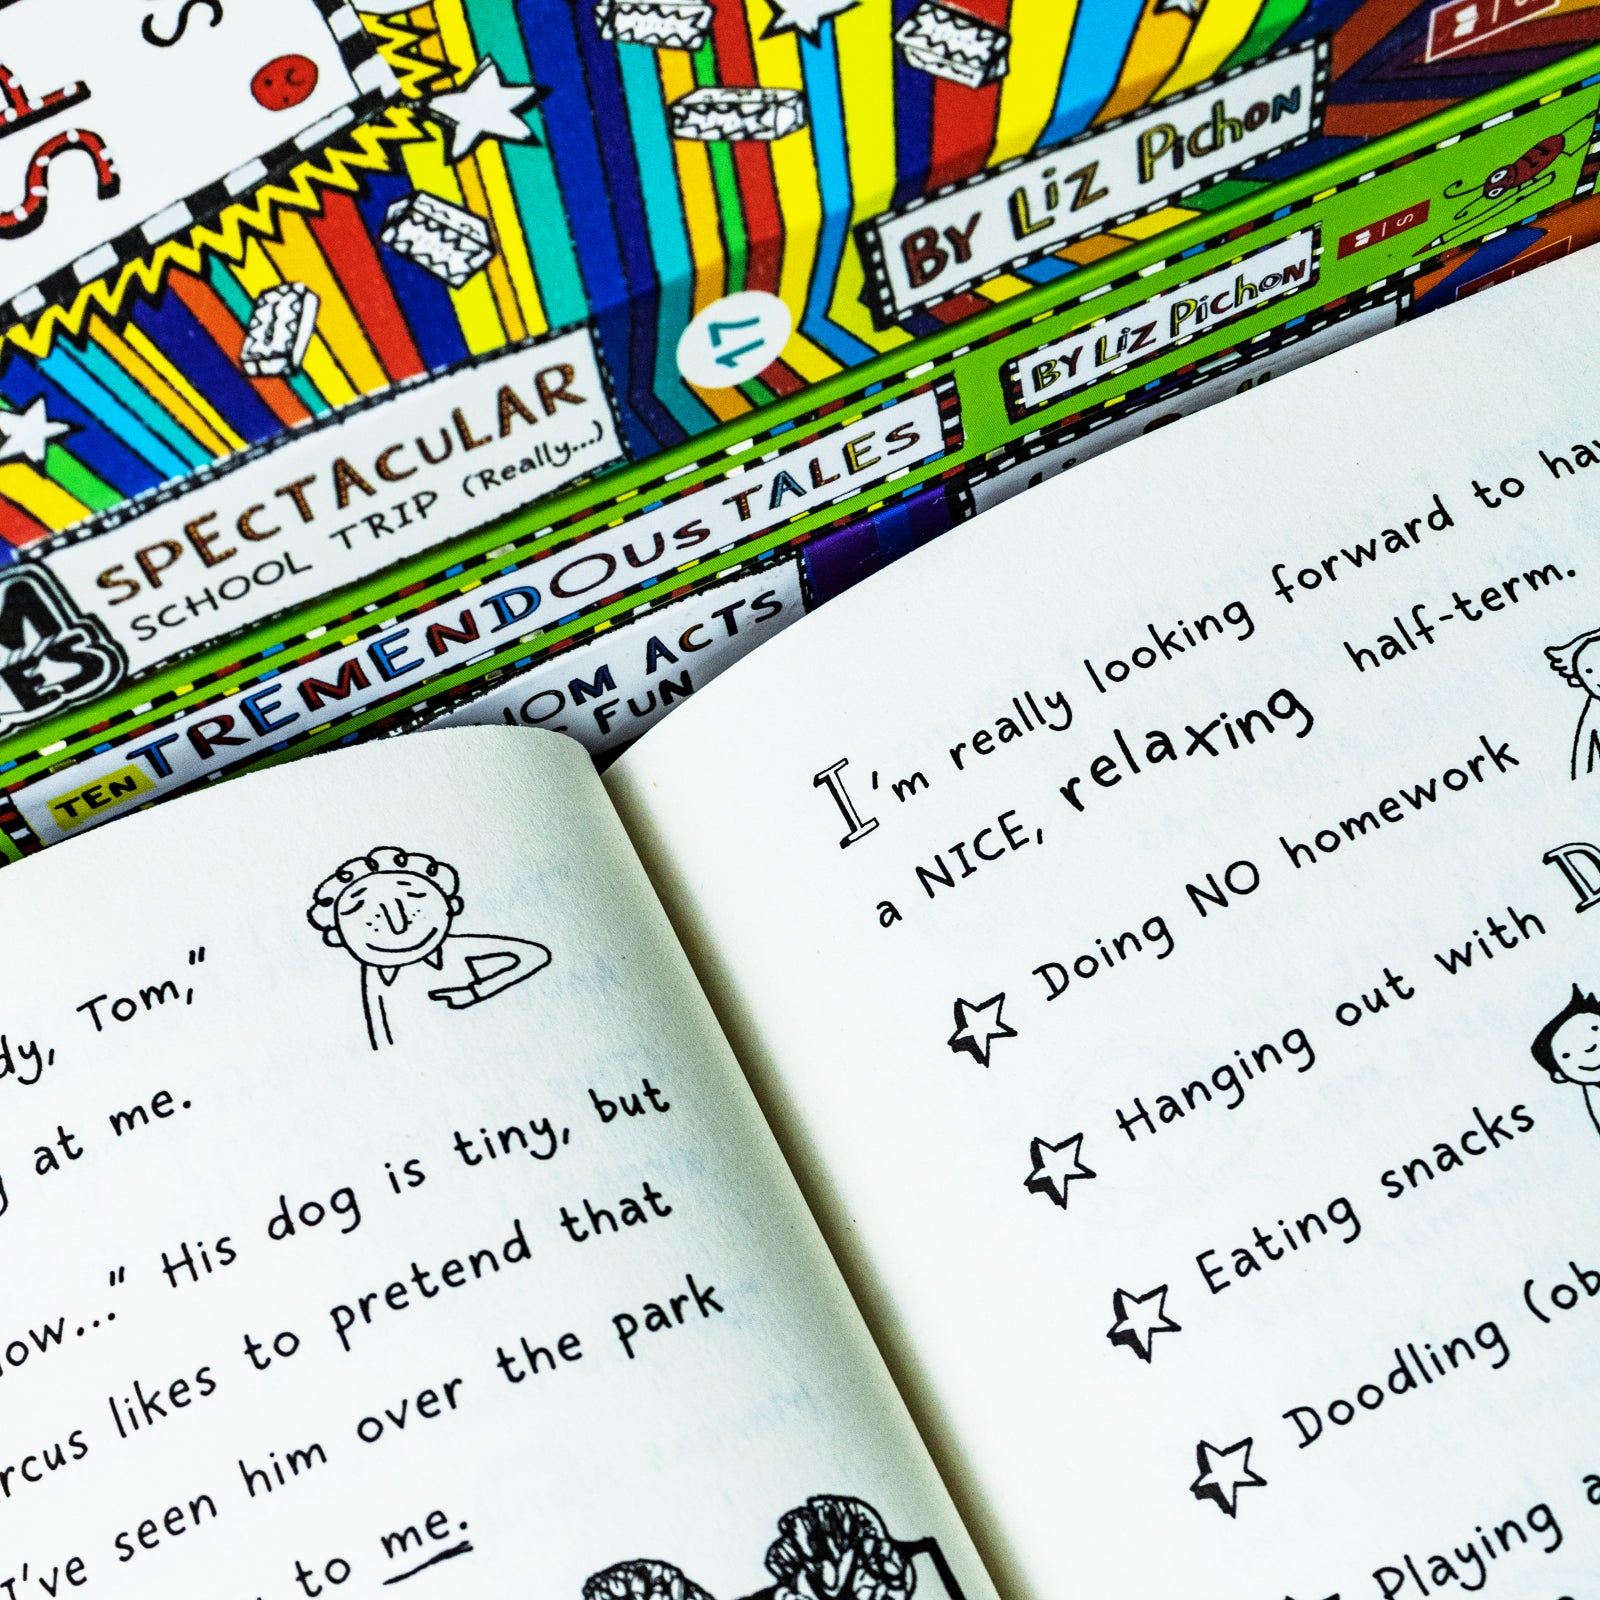 BY LIZ PICHON
17
SPECTACULAR
SCHOOL TRIP (Really...)
BY LIZ PICHON
TEN TREMENDOUS TALES
ACTS
FUN
Tom,"
at me.
His dog is tiny, but
likes to pretend that
I've seen him over the park
to me.
I'm really looking forward to
a NICE, relaxing half-term.
Doing NO homework
Hanging out with
Eating snacks
Doodling
Playing